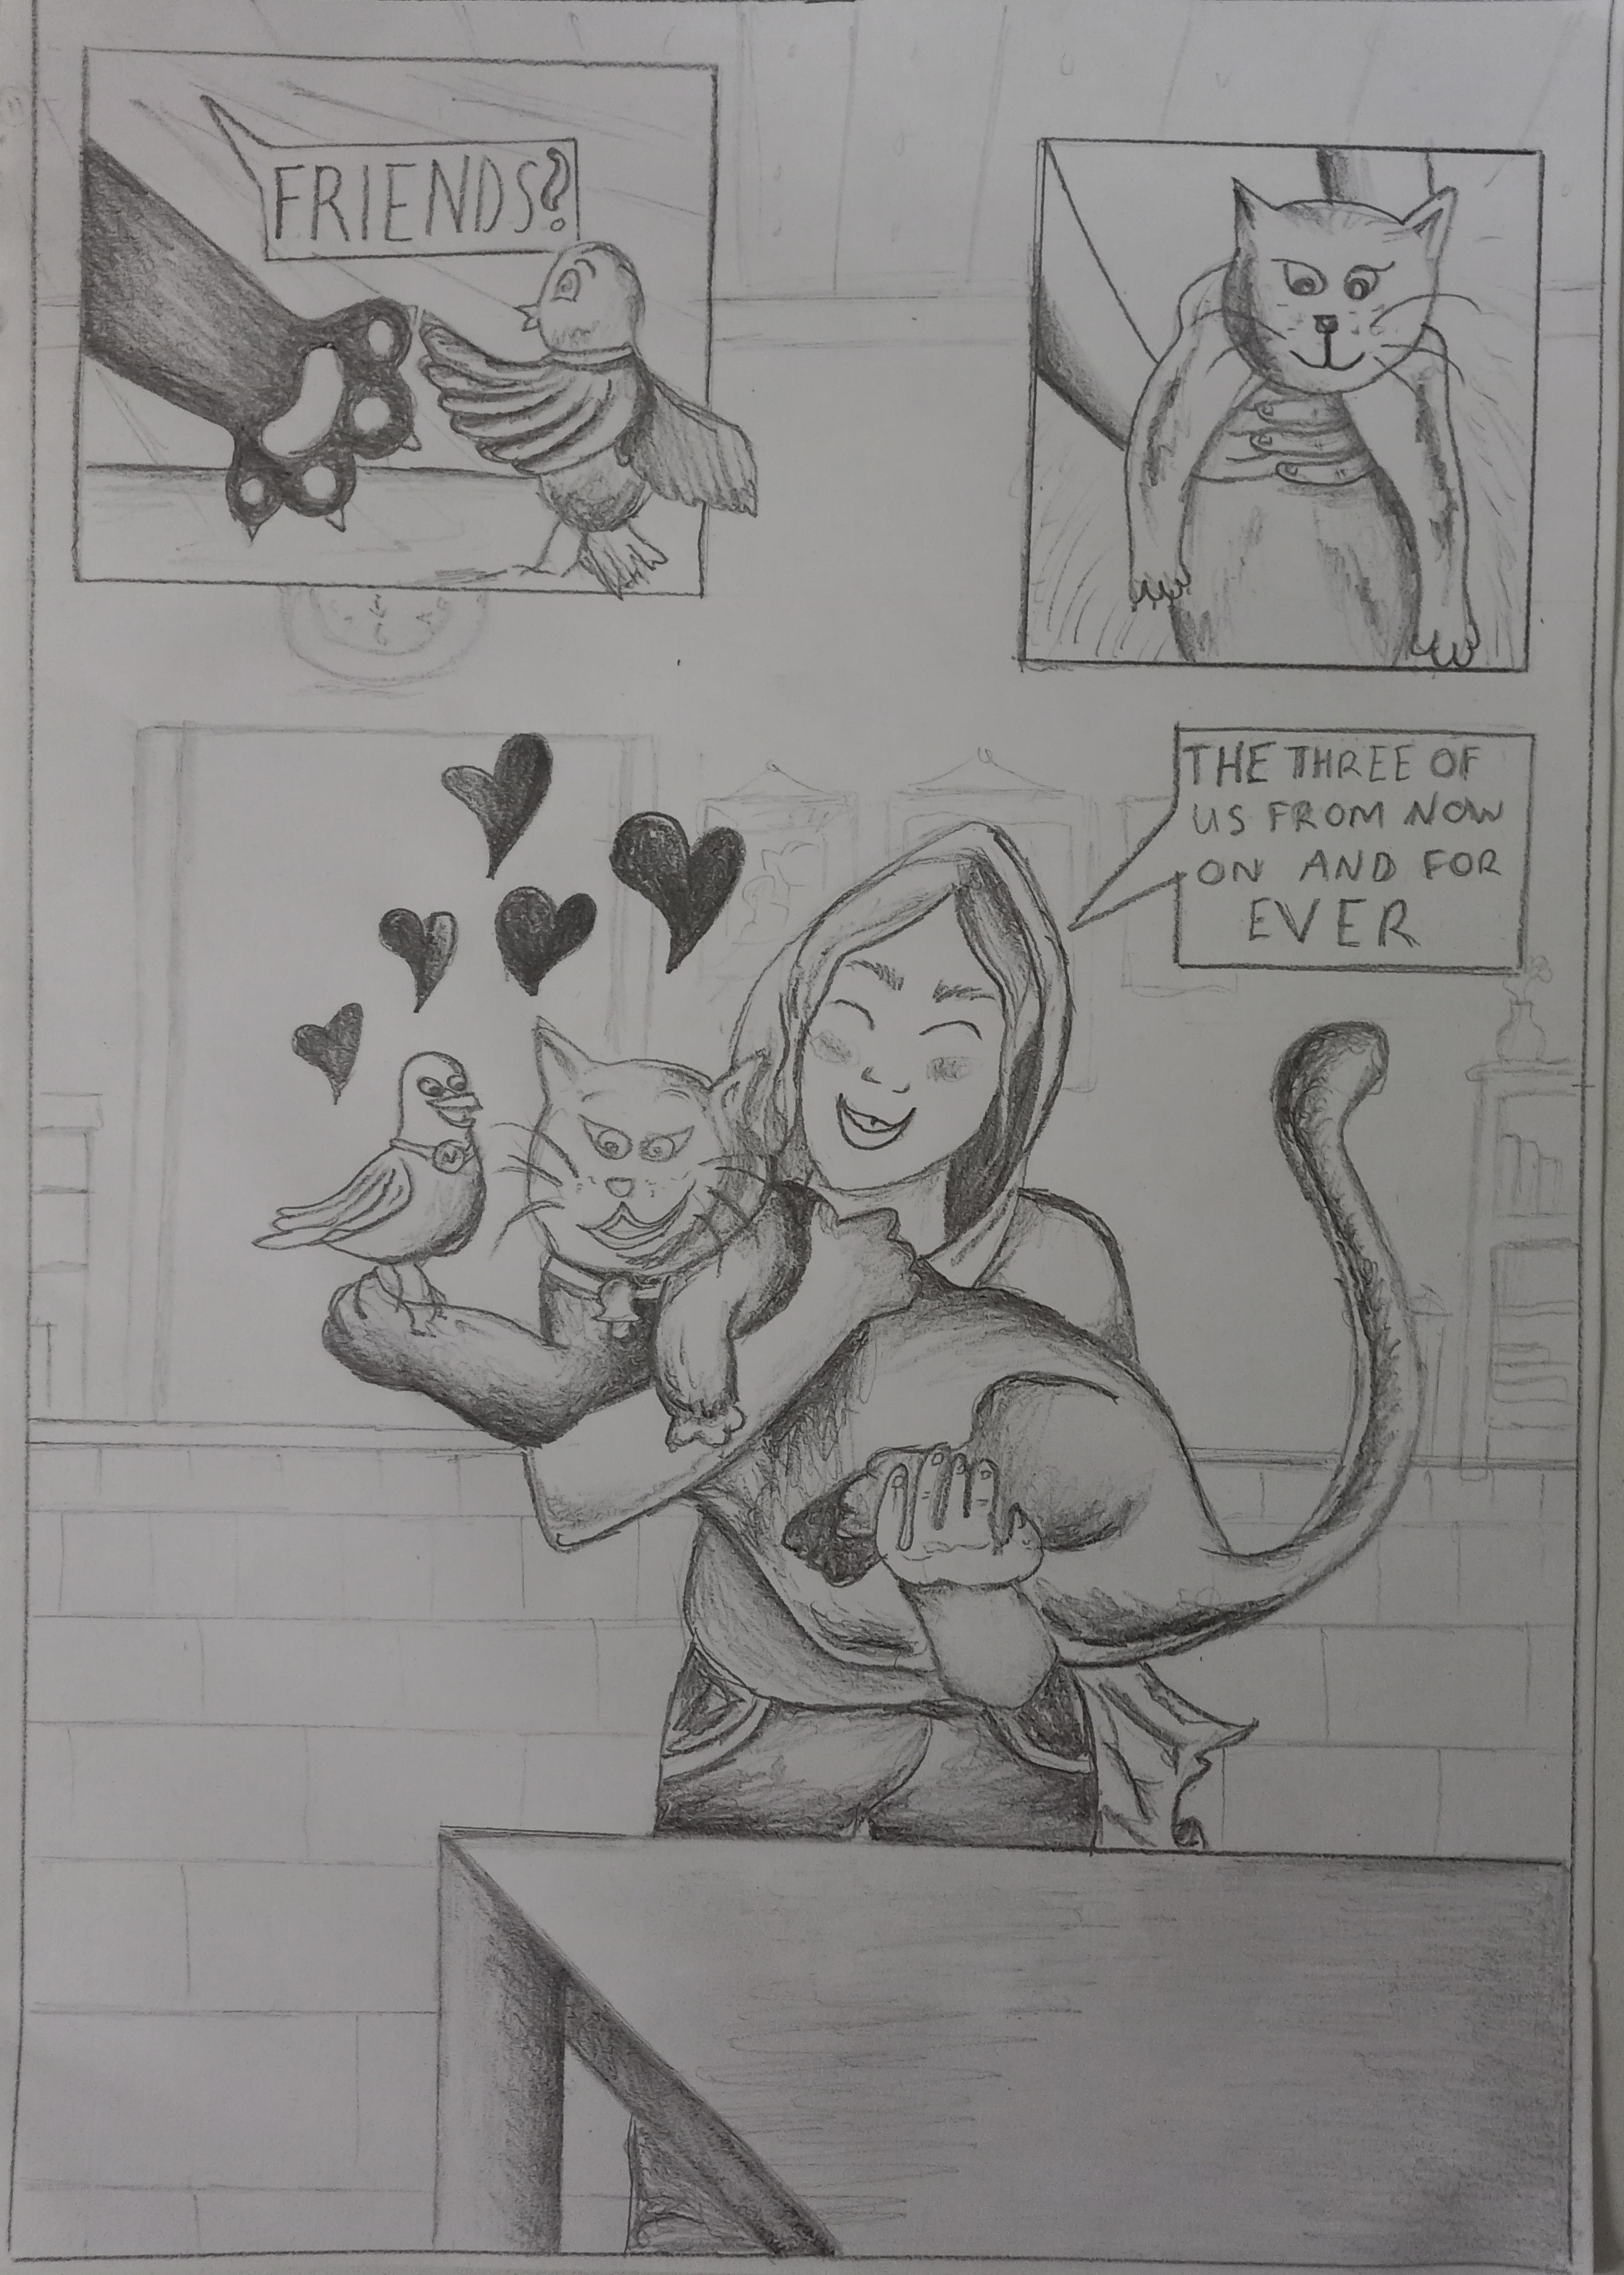 FRIENDS?
THE THREE OF
US FROM NOW
ON AND FOR
EVER